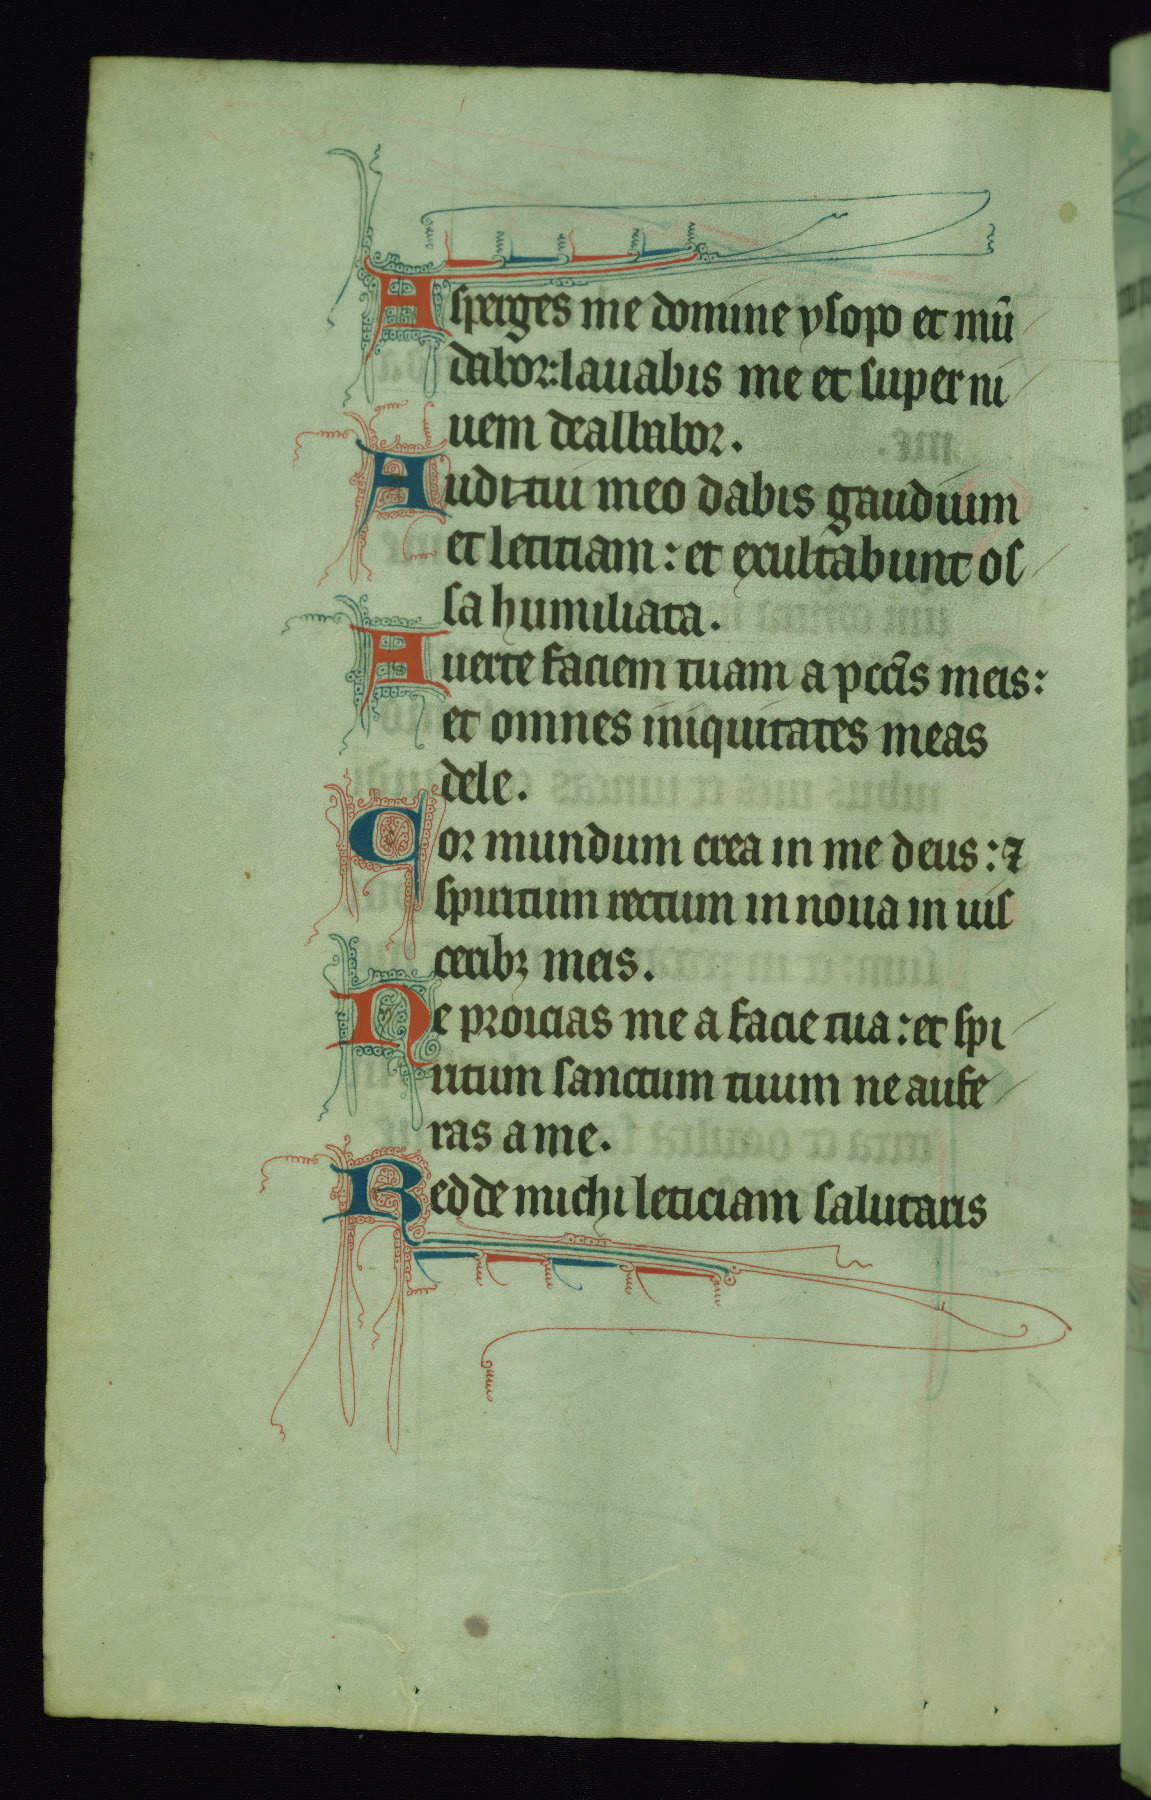 Asperges me domine ysopo et mū
dabor: lauabis me et super ni
uem dealbabor.
Auditui meo dabis gaudium
et letitiam: et exultabunt os
sa humiliata.
Auerte faciem tuam a pcc̄is meis:
et omnes iniquitates meas
dele.
Cor mundum crea in me deus: ⁊
spiritum rectum innoua in uis
ceribꝫ meis.
Ne proicias me a facie tua: et spi
ritum sanctum tuum ne aufe
ras a me.
Redde michi leticiam salutaris